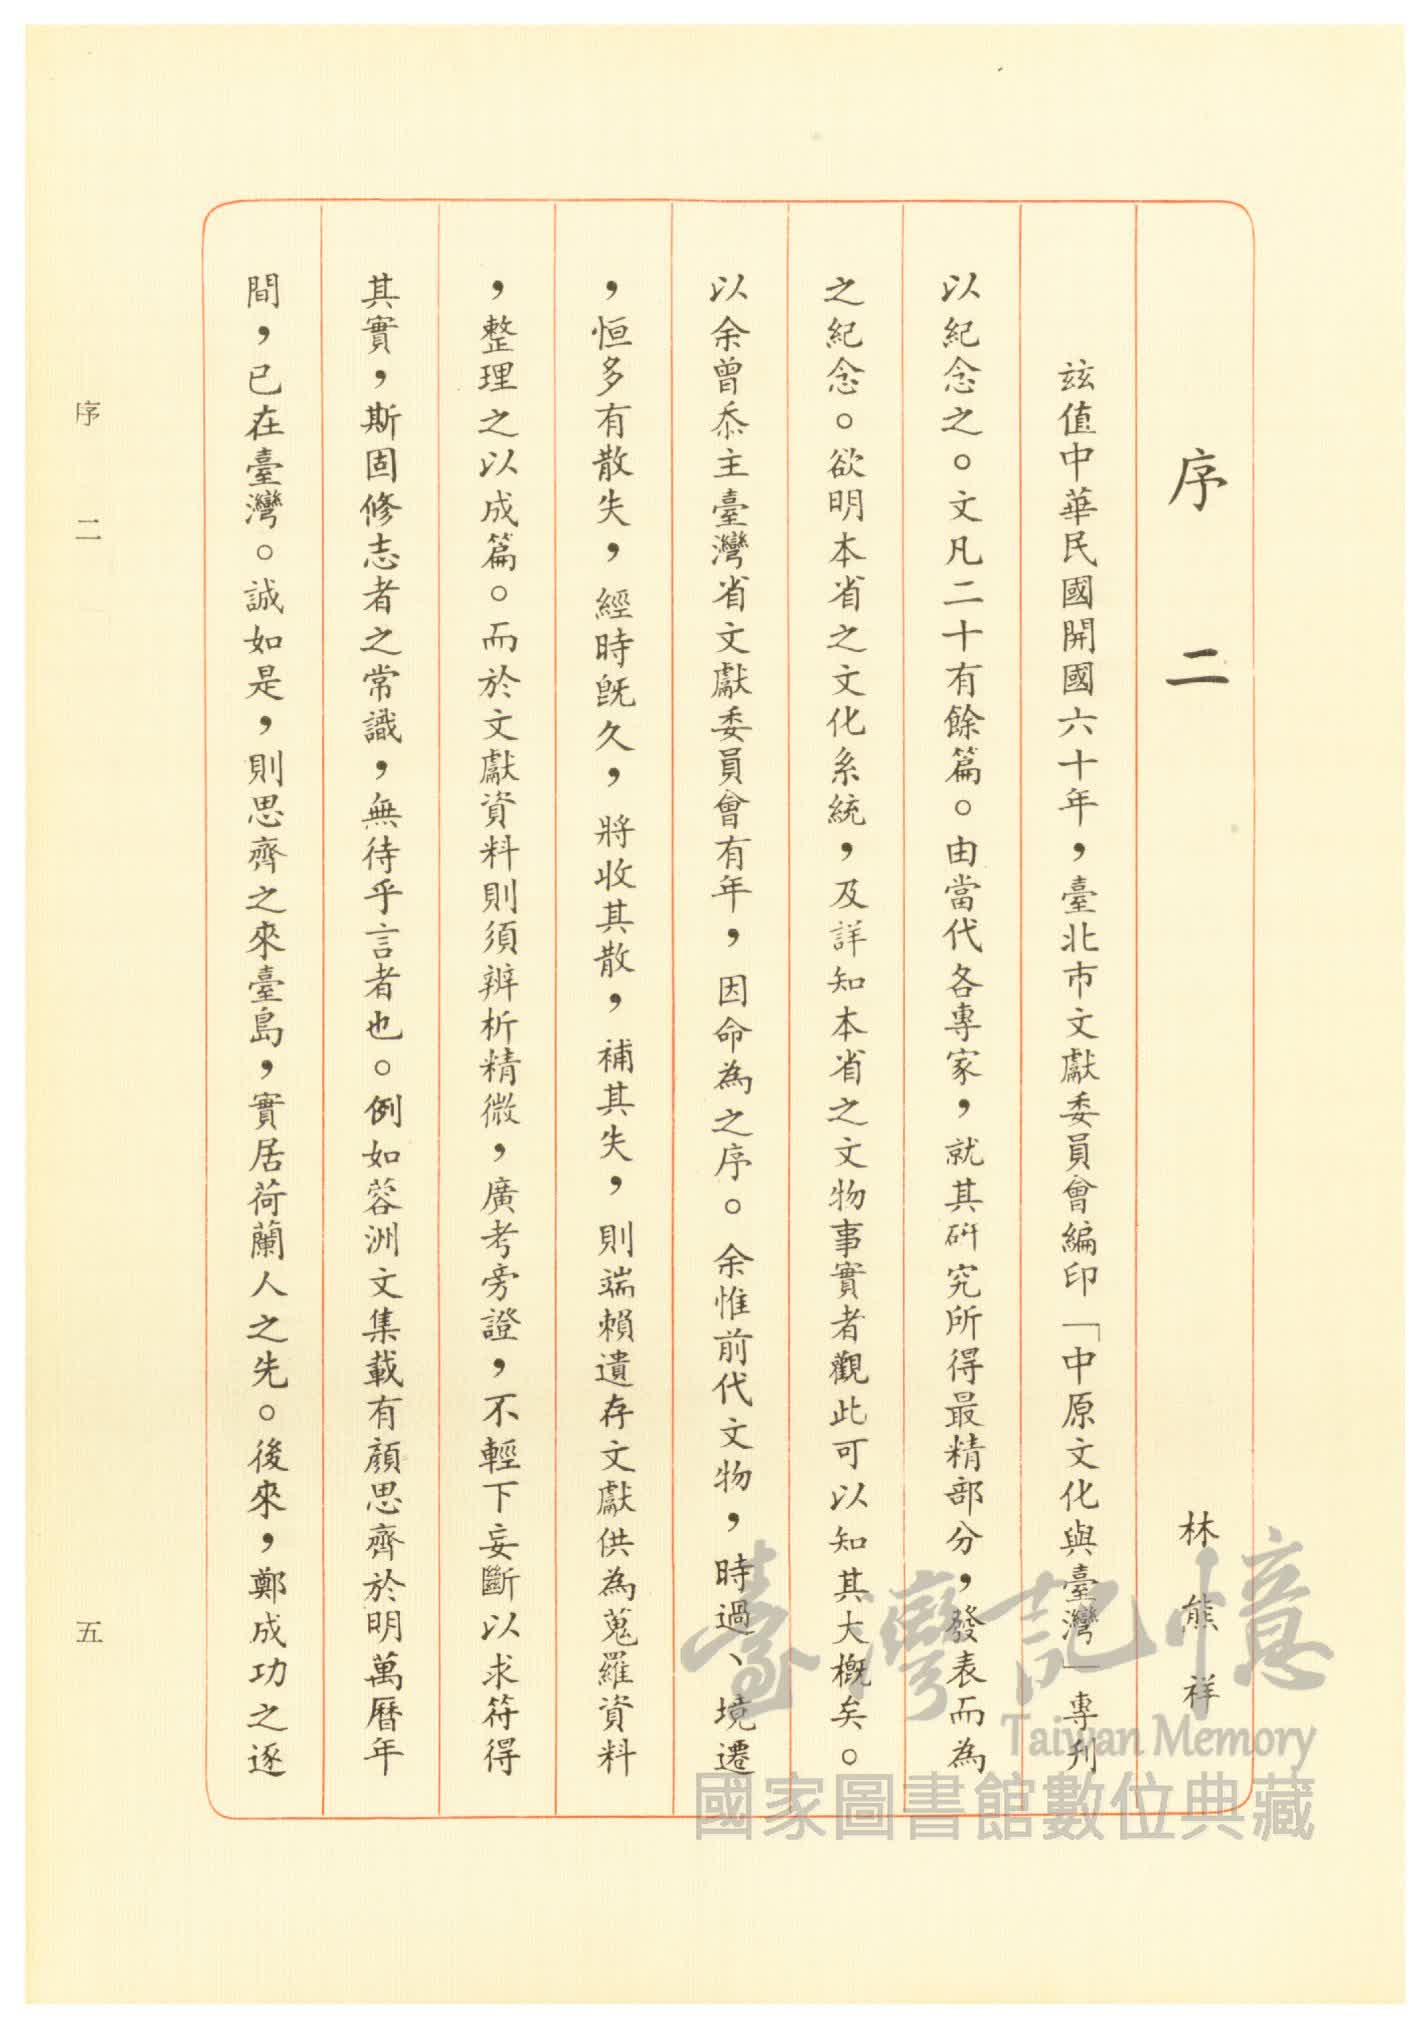 序二
林熊祥
茲值中華民國開國六十年，臺北市文獻委員會編印「中原文化與臺灣」專刊
以紀念之。文凡二十有餘篇。由當代各專家，就其研究所得最精部分，發表而為
之紀念。欲明本省之文化系統，及詳知本省之文物事實者觀此可以知其大概矣。
以余曾忝主臺灣省文獻委員會有年，因命為之序。余惟前代文物，時過、境遷
，恒多有散失，經時既久，將收其散，補其失，則端賴遺存文獻供為蒐羅資料
，整理之以成篇。而於文獻資料則須辨析精微，廣考旁證，不輕下妄斷以求符得
其實，斯固修志者之常識，無待乎言者也。例如蓉洲文集載有顏思齊於明萬曆年
間，已在臺灣。誠如是，則思齊之來臺島，實居荷蘭人之先。後來，鄭成功之逐
序二
五
臺灣記憶
Taiwan Memory
國家圖書館數位典藏